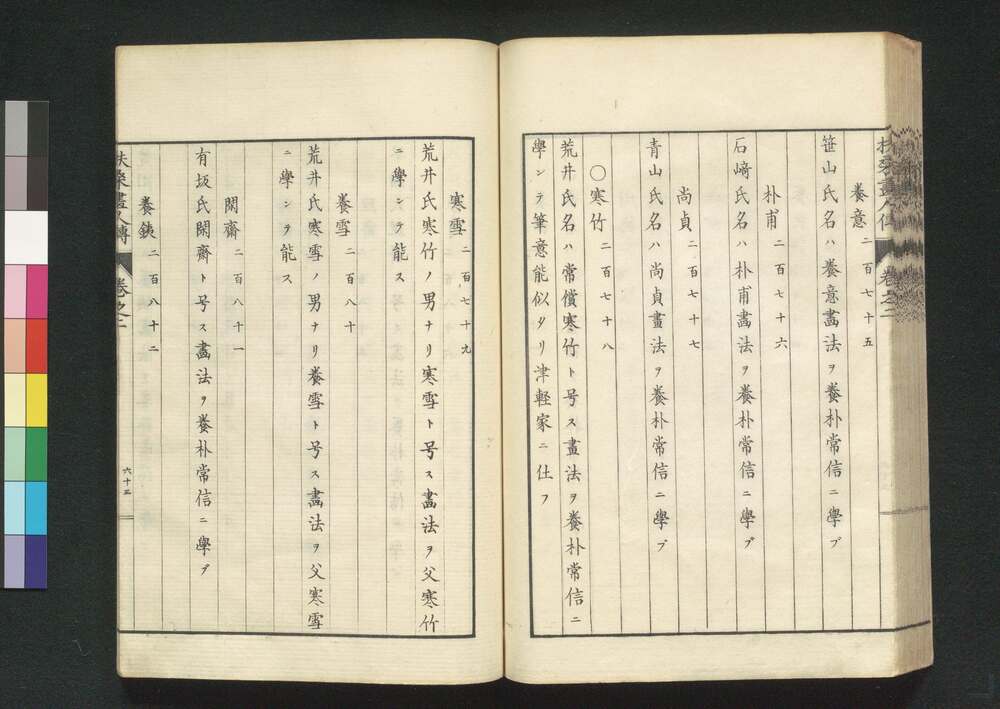 扶桑畫人傳 卷之二
養意 二百七十五
笹山氏名ハ養意畫法ヲ養朴常信ニ學ブ
朴甫 二百七十六
石﨑氏名ハ朴甫畫法ヲ養朴常信ニ學ブ
尚貞 二百七十七
青山氏名ハ尚貞畫法ヲ養朴常信ニ學ブ
〇寒竹 二百七十八
荒井氏名ハ常償寒竹ト号ス畫法ヲ養朴常信ニ
學ンテ筆意能似タリ津軽家ニ仕フ
寒雪 二百七十九
荒井氏寒竹ノ男ナリ寒雪ト号ス畫法ヲ父寒竹
ニ學ンテ能ス
養雪 二百八十
荒井氏寒雪ノ男ナリ養雪ト号ス畫法ヲ父寒雪
ニ學ンテ能ス
閑齋 二百八十一
有坂氏閑齋ト号ス畫法ヲ養朴常信ニ學ブ
養銕 二百八十二
扶桑畫人傳 卷之二 六十三